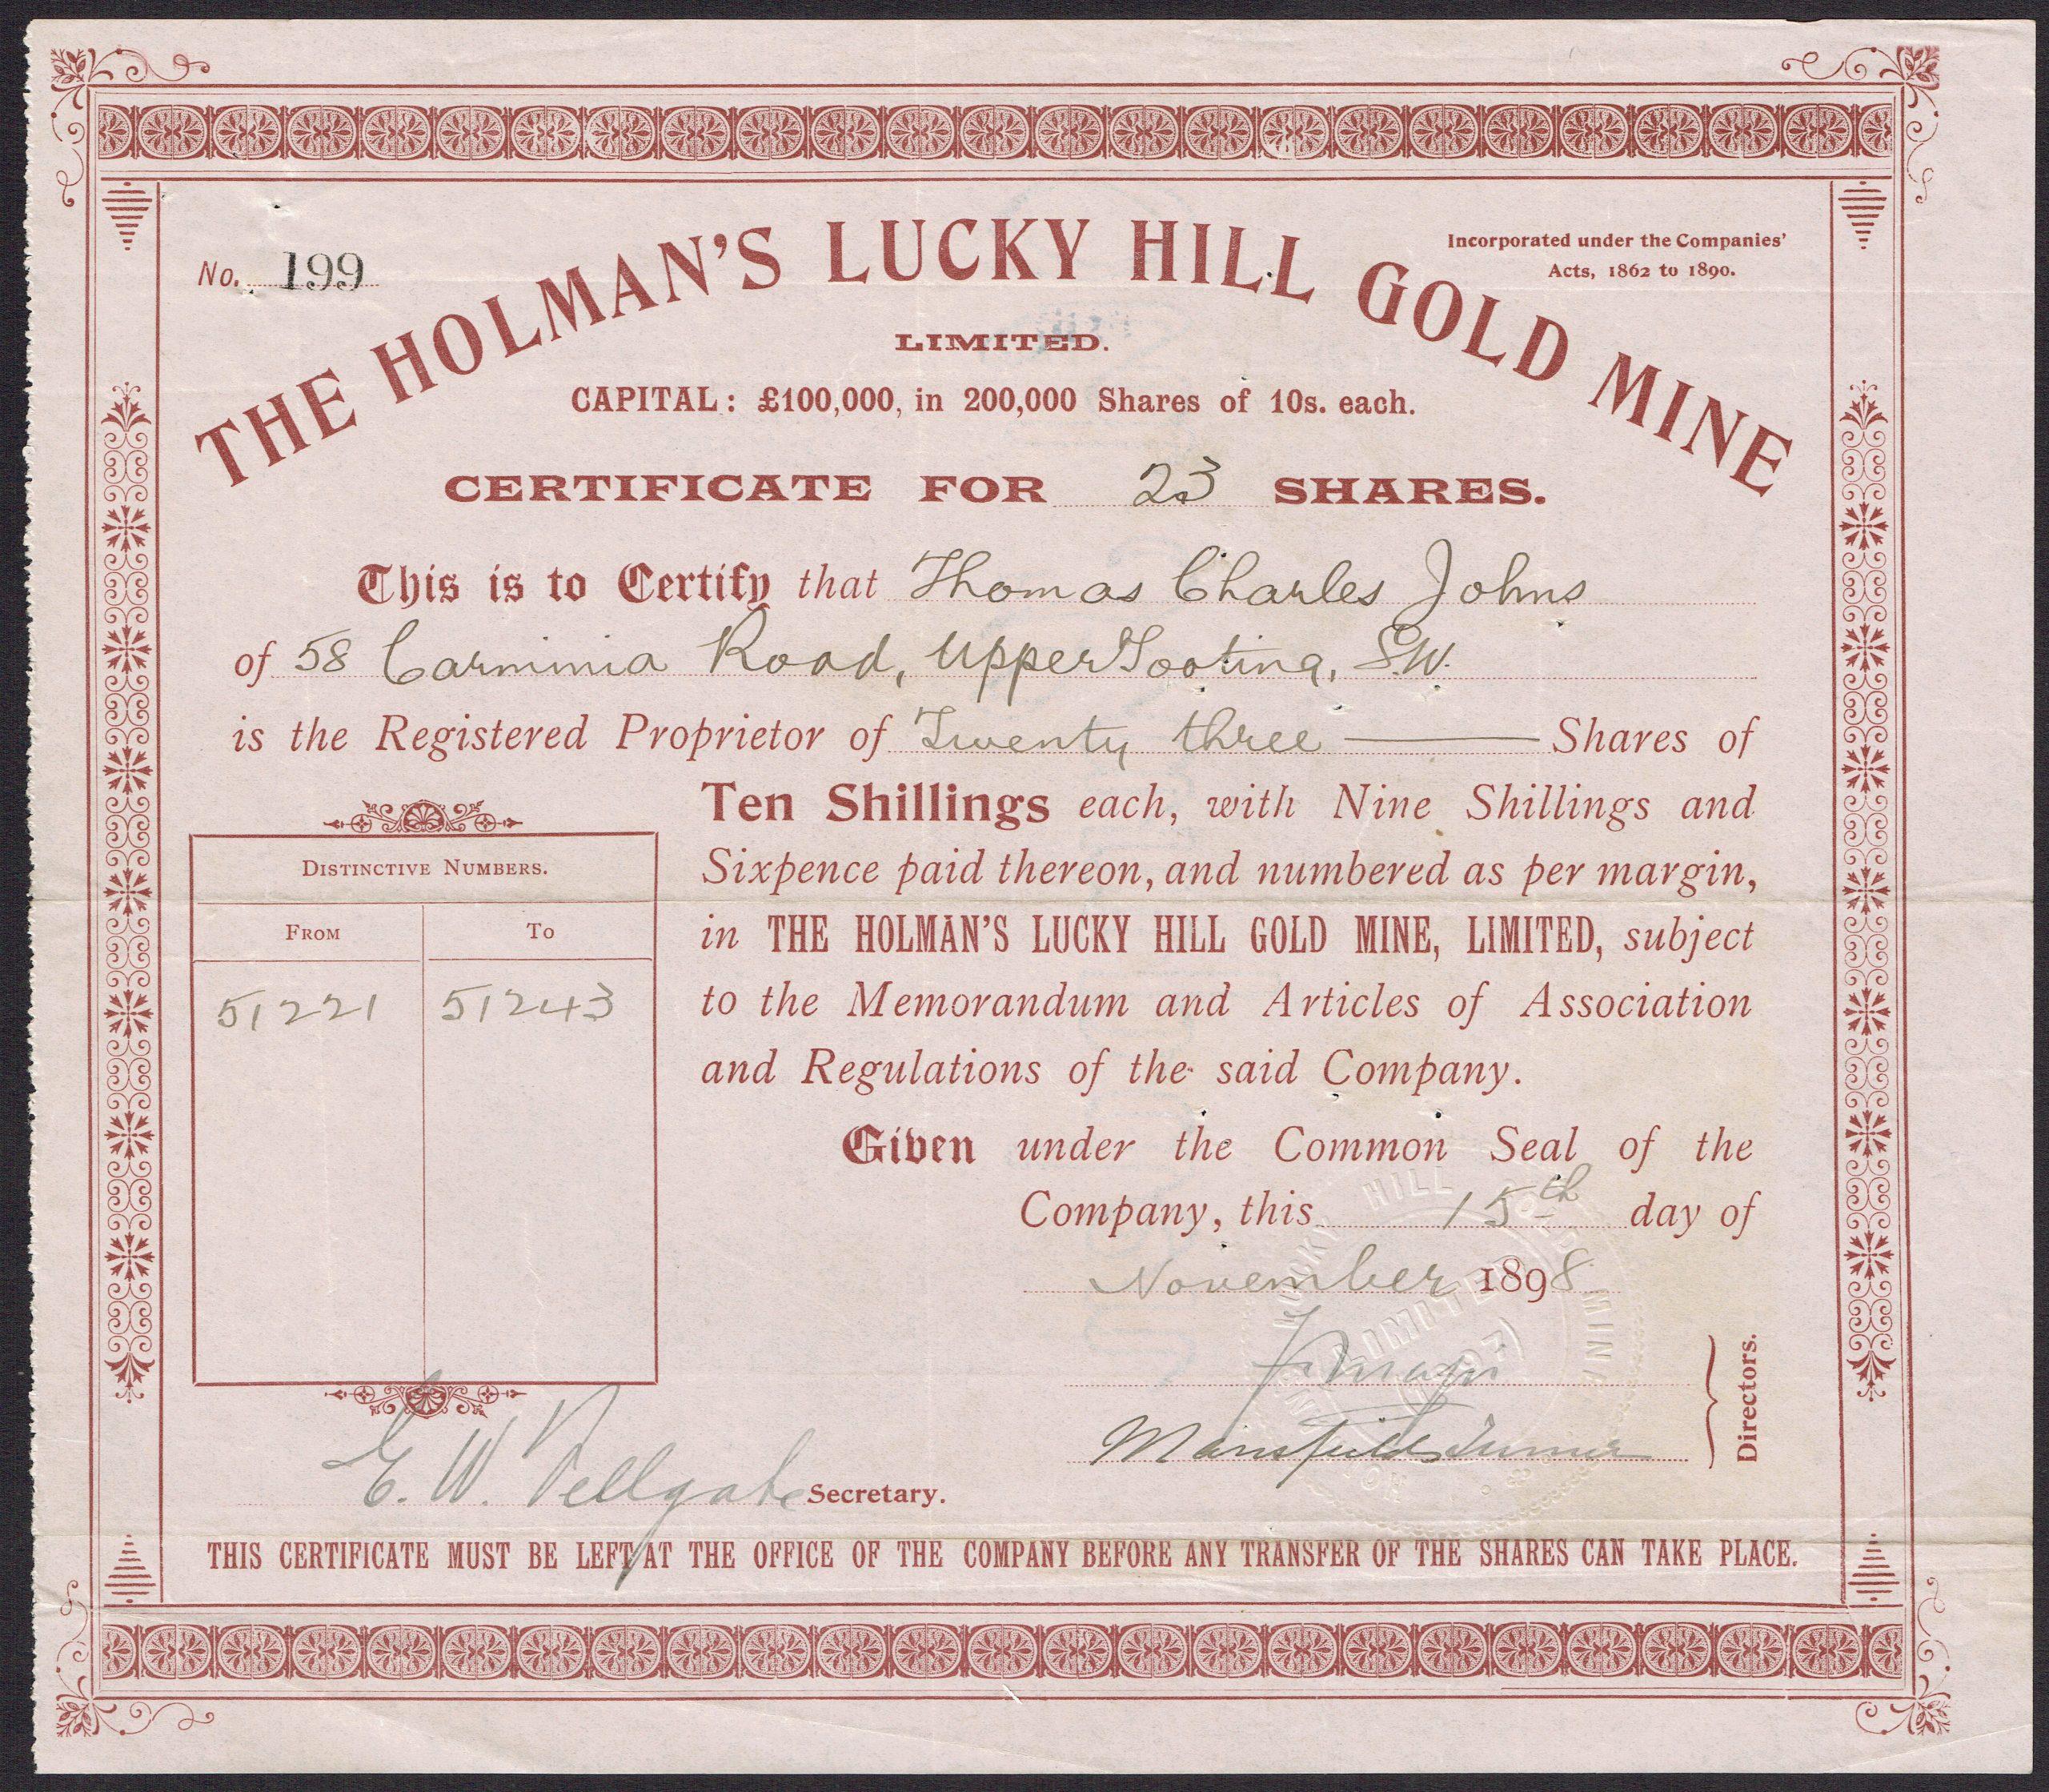 No. 199
Incorporated under the Companies'
Acts, 1862 to 1890.
THE HOLMAN'S LUCKY HILL GOLD MINE
LIMITED.
CAPITAL: £100,000, in 200,000 Shares of 10s. each.
CERTIFICATE FOR 23 SHARES.
This is to Certify that Thomas Charles Johns
of 58 Carminia Road, Upper Tooting, S.W.
is the Registered Proprietor of Twenty three Shares of
Ten Shillings each, with Nine Shillings and
Sixpence paid thereon, and numbered as per margin,
in THE HOLMAN'S LUCKY HILL GOLD MINE, LIMITED, subject
to the Memorandum and Articles of Association
and Regulations of the said Company.
DISTINCTIVE NUMBERS.
FROM TO
51221 51243
Given under the Common Seal of the
Company, this 15th day of
November 1898
LUCKY HILL GOLD MINE
LIMITED
Mansfield Turner
Directors.
E. W. Vellgate Secretary.
THIS CERTIFICATE MUST BE LEFT AT THE OFFICE OF THE COMPANY BEFORE ANY TRANSFER OF THE SHARES CAN TAKE PLACE.